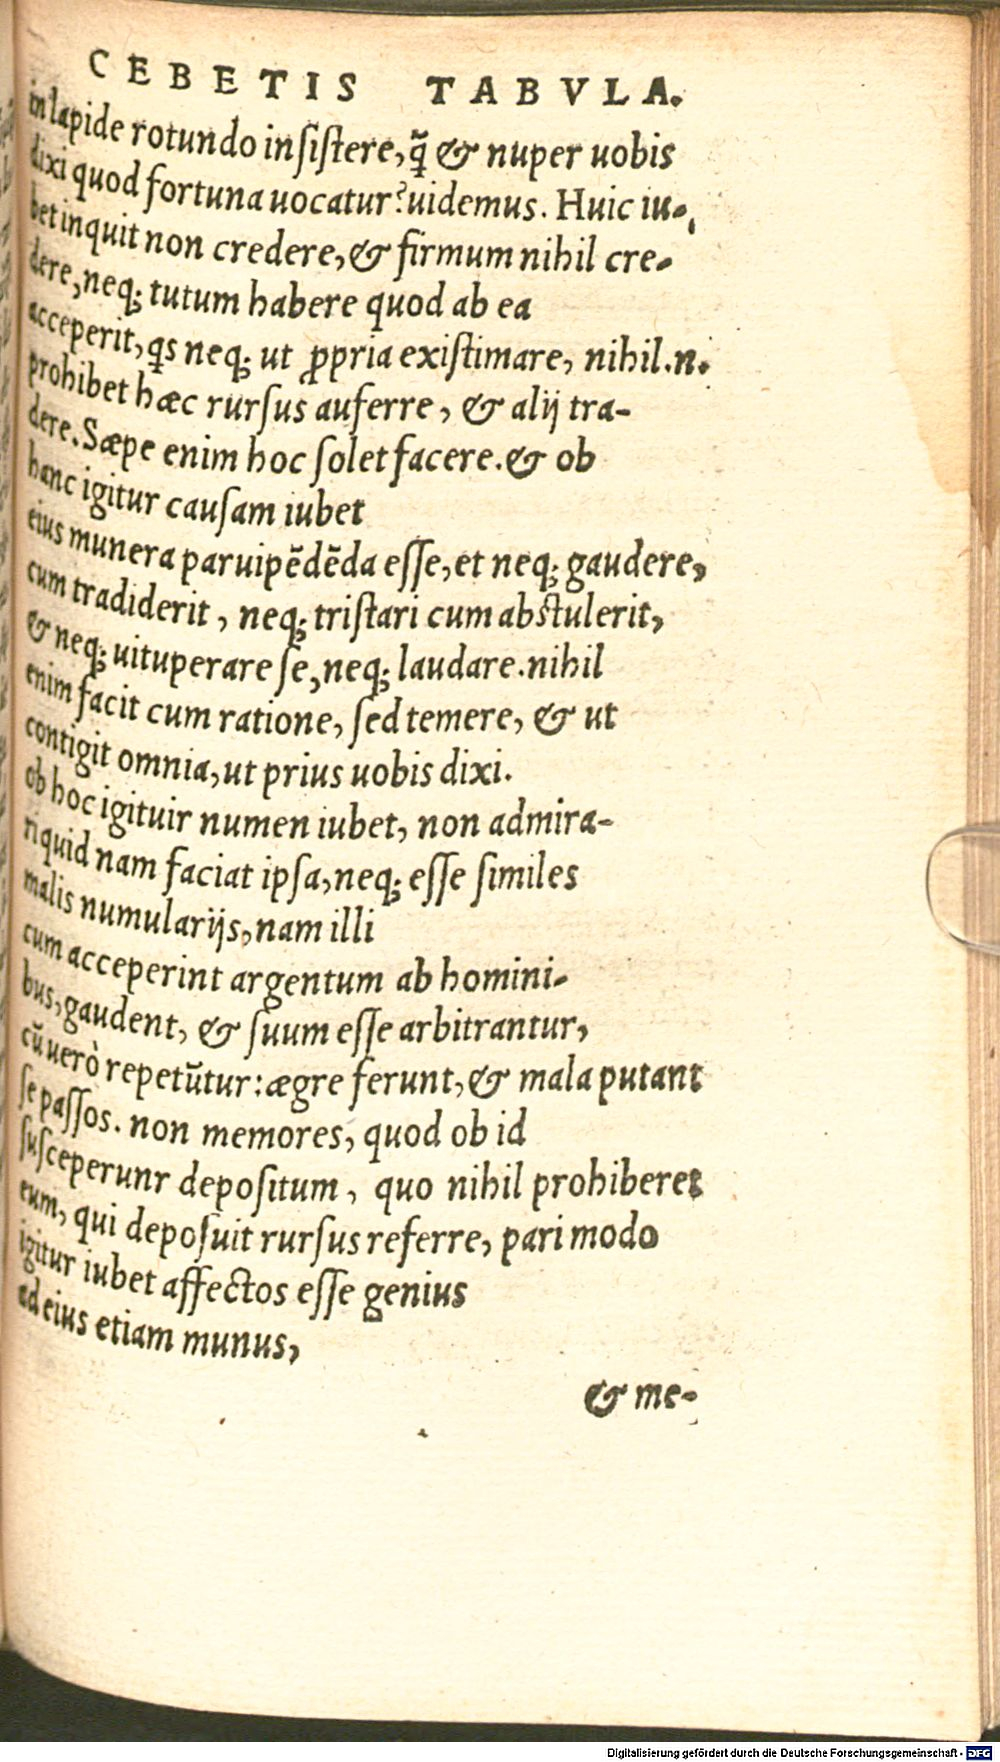 CEBETIS TABVLA.
in lapide rotundo insistere, q̃ & nuper uobis
dixi quod fortuna uocatur? uidemus. Huic iu-
bet inquit non credere, & firmum nihil cre-
dere, neq; tutum habere quod ab ea
acceperit, qs neq; ut ꝓpria existimare, nihil.n.
prohibet hæc rursus auferre, & alij tra-
dere. Sæpe enim hoc solet facere. & ob
hanc igitur causam iubet
eius munera paruipēdēda esse, et neq; gaudere,
cum tradiderit, neq; tristari cum abstulerit,
& neq; uituperare se, neq; laudare. nihil
enim facit cum ratione, sed temere, & ut
contigit omnia, ut prius uobis dixi.
ob hoc igituir numen iubet, non admira-
ri quid nam faciat ipsa, neq; esse similes
malis numularijs, nam illi
cum acceperint argentum ab homini-
bus, gaudent, & suum esse arbitrantur,
cū uerò repetūtur: ægre ferunt, & mala putant
se passos. non memores, quod ob id
susceperunr depositum, quo nihil prohiberet
eum, qui deposuit rursus referre, pari modo
igitur iubet affectos esse genius
ad eius etiam munus,
& me-
Digitalisierung gefördert durch die Deutsche Forschungsgemeinschaft - DFG